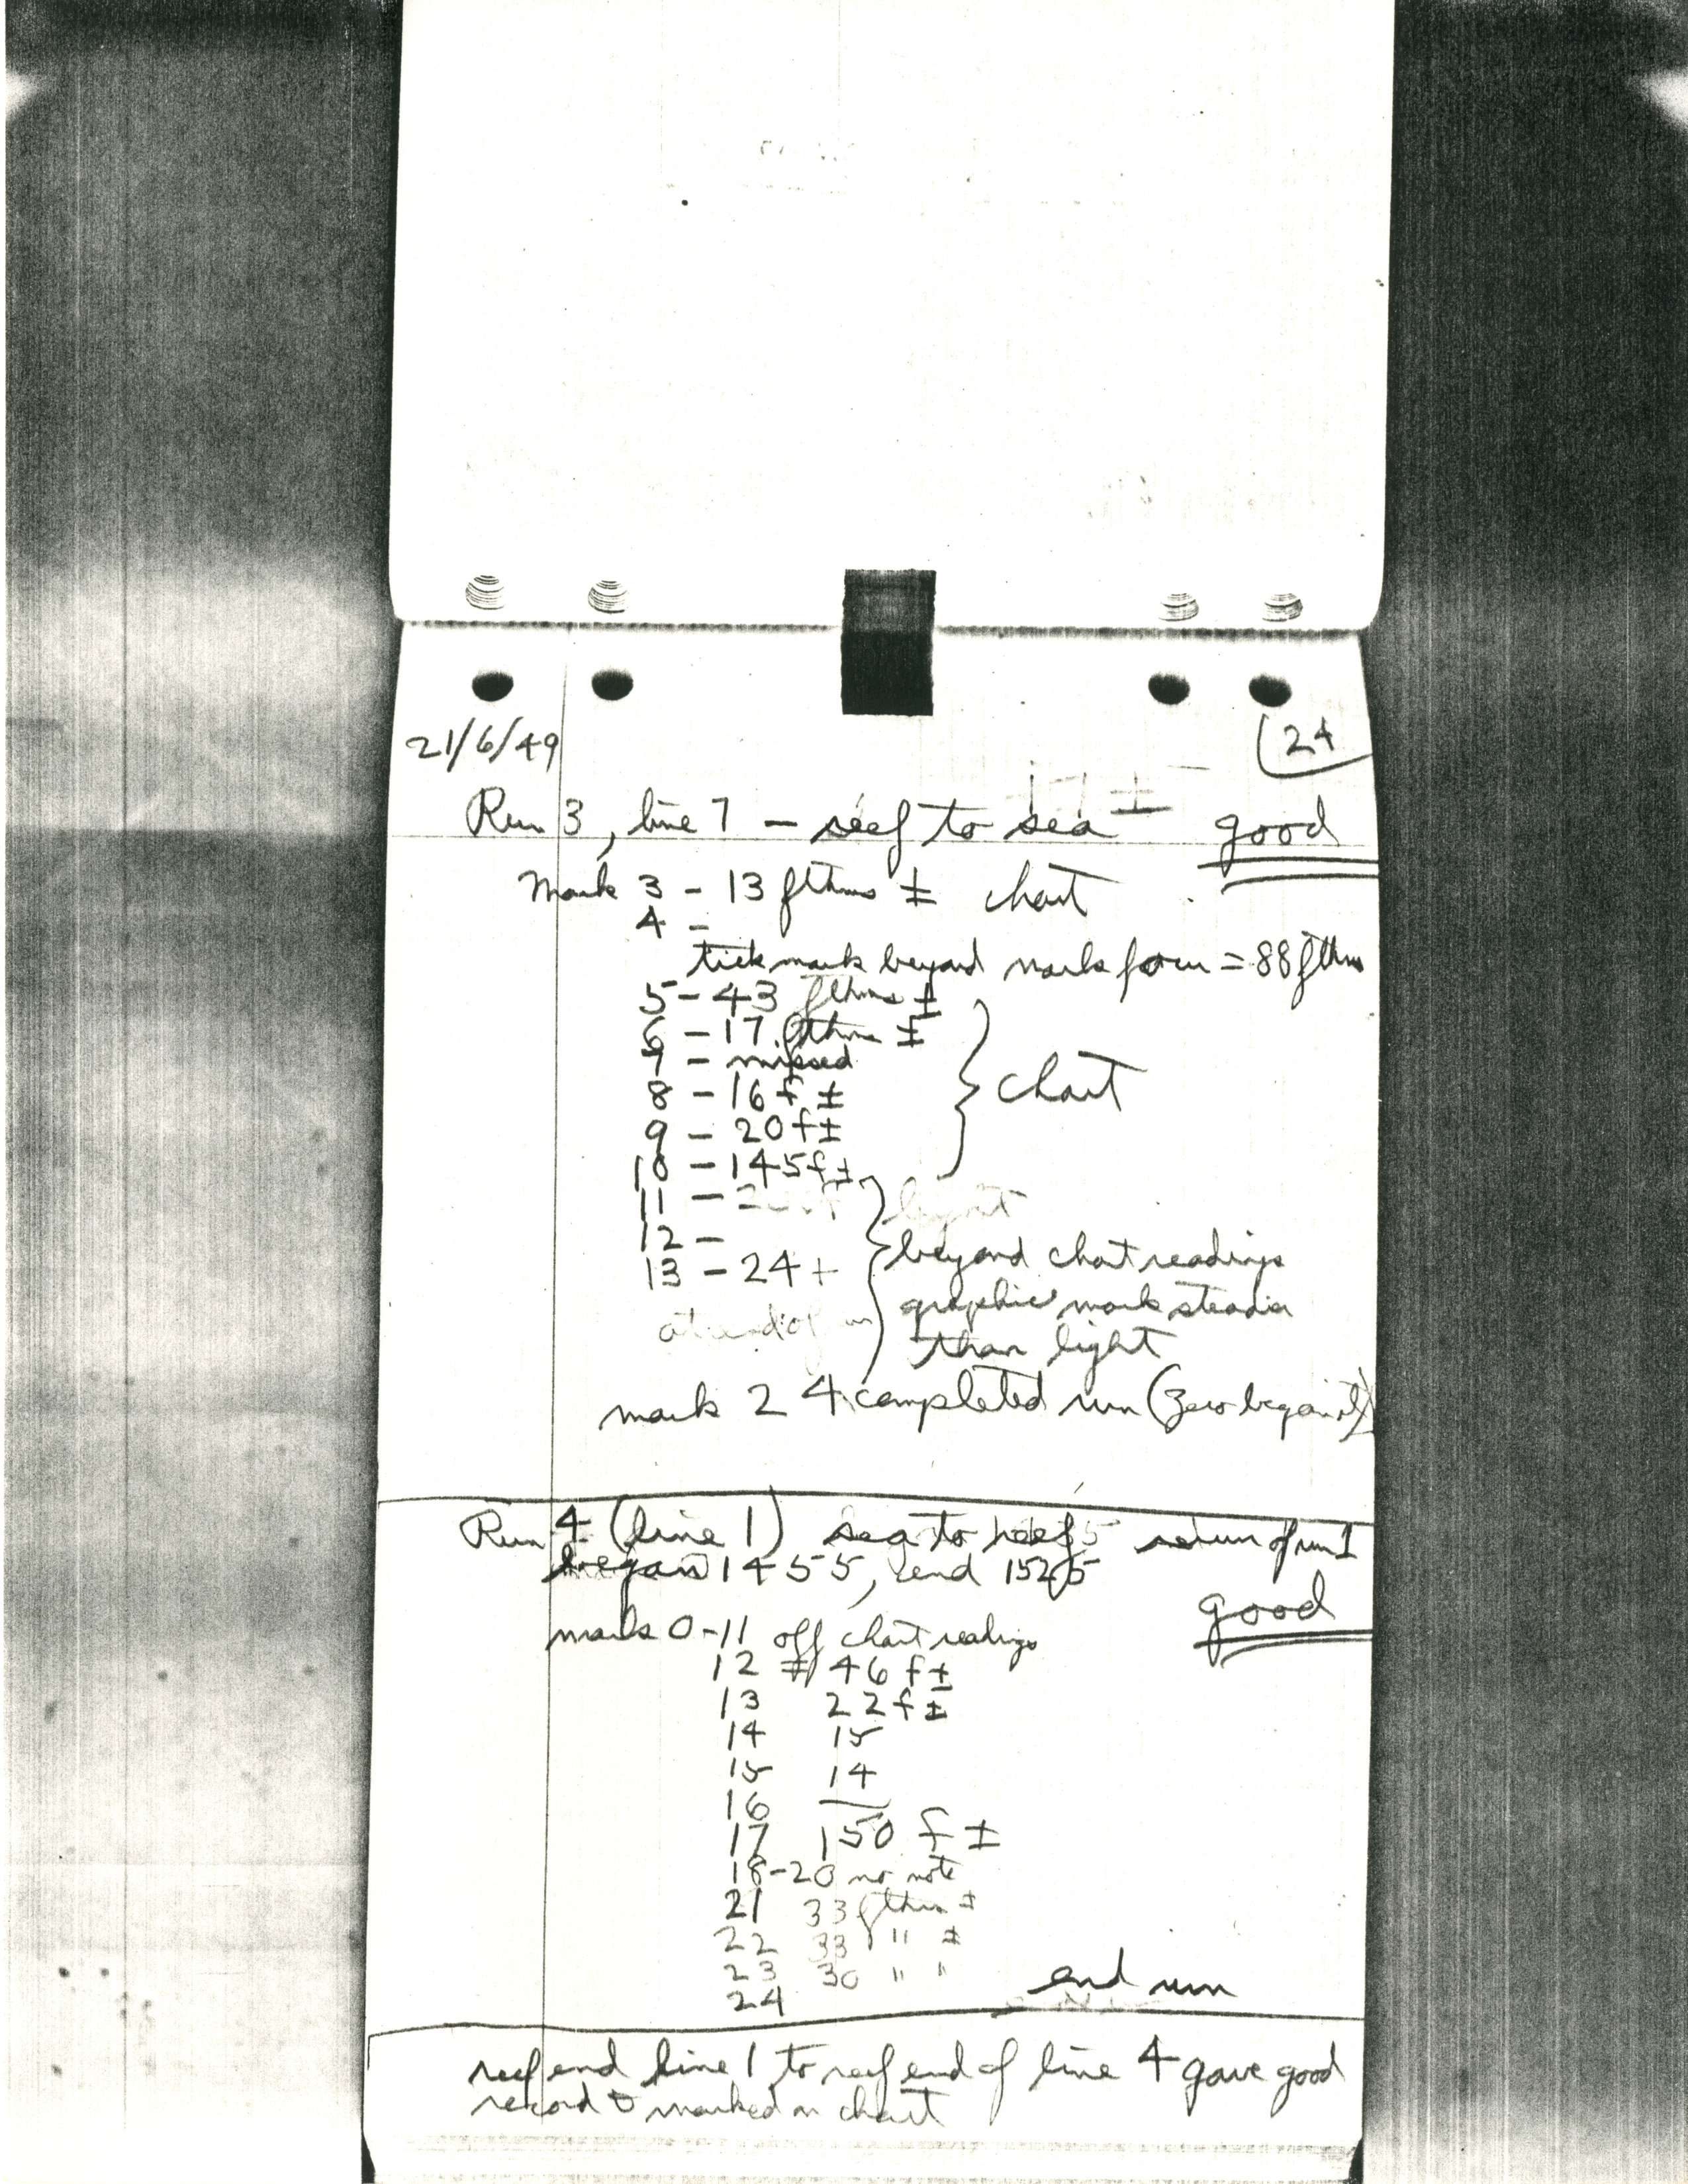 21/6/49
24
Run 3, line 7 - reef to sea ±
good
Mark 3 - 13 fthms ± chart
4 -
tick mark beyond mark four = 88 fthms
5 - 43 fthms ±
6 - 17 fthms ±
7 - missed
8 - 16 f ±
9 - 20 f ±
chart
10 - 145 f ±
11 -
light
12 -
beyond chart readings
13 - 24 +
graphic mark steadier
at end of run
than light
mark 24 completed run (zero began it)
Run 4 (line 1) sea to reef return of run 1
began 1455, end 1525
good
mark 0-11 off chart readings
12 46 f ±
13 22 f ±
14 15
15 14
16 —
17 150 f ±
18-20 no note
21 33 fthms ±
22 33 " ±
23 30 " "
24
end run
reef end line 1 to reef end of line 4 gave good
record & marked on chart